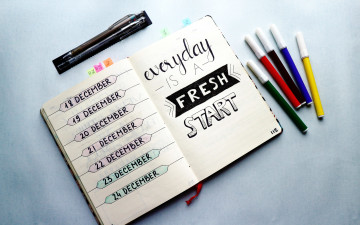 18 DECEMBER
19 DECEMBER
20 DECEMBER
21 DECEMBER
22 DECEMBER
23 DECEMBER
24 DECEMBER
everyday
IS A
FRESH
START